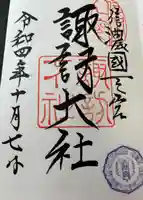 信濃國一之宮
諏訪大社
令和四年十月七日